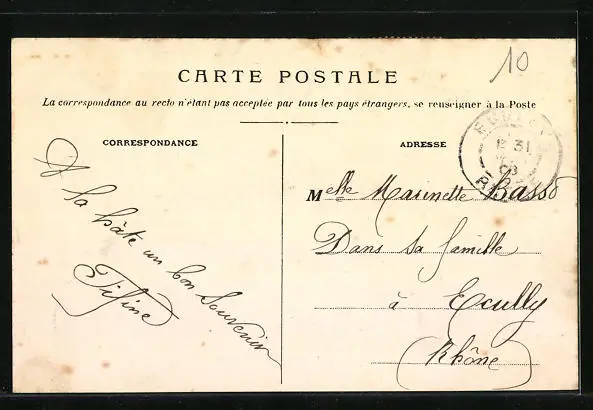 10
CARTE POSTALE
La correspondance au recto n'étant pas acceptée par tous les pays étrangers, se renseigner à la Poste
CORRESPONDANCE
ADRESSE
31
08
A la hâte un bon Souvenir
Fifine
Melle Marinette Basso
Dans sa famille
à Ecully
(Rhône)